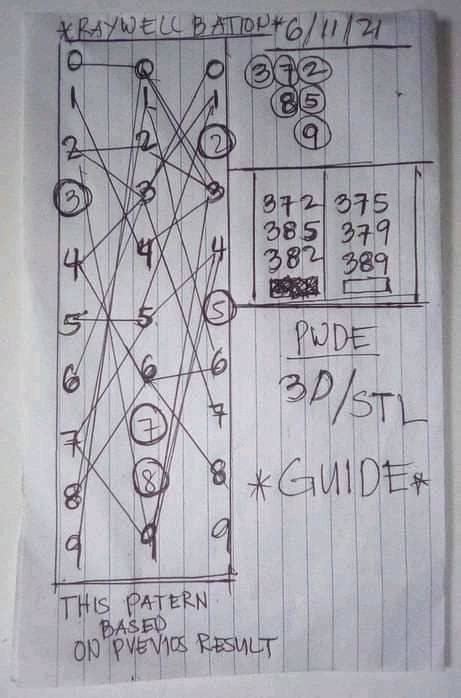 *RAYWELL BATION* 6/11/21
0 0 0
1 1 1
2 2 2
3 3 3
4 4 4
5 5 5
6 6 6
7 7 7
8 8 8
9 9 9
3 7 2
8 5
9
372 375
385 379
382 389
PWDE
3D/STL
*GUIDE*
THIS PATERN
BASED
ON PVEVIOS RESULT